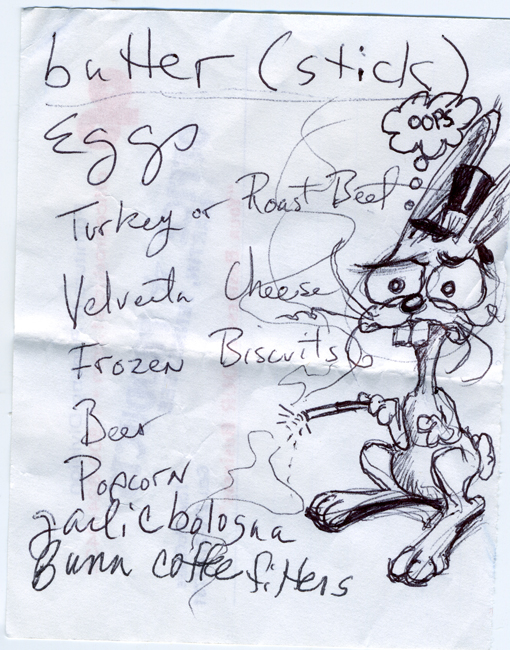 butter (stick)
OOPS
Eggs
Turkey or Roast Beef
Velveeta Cheese
Frozen Biscuits
Beer
Popcorn
garlic bologna
Bunn coffee filters